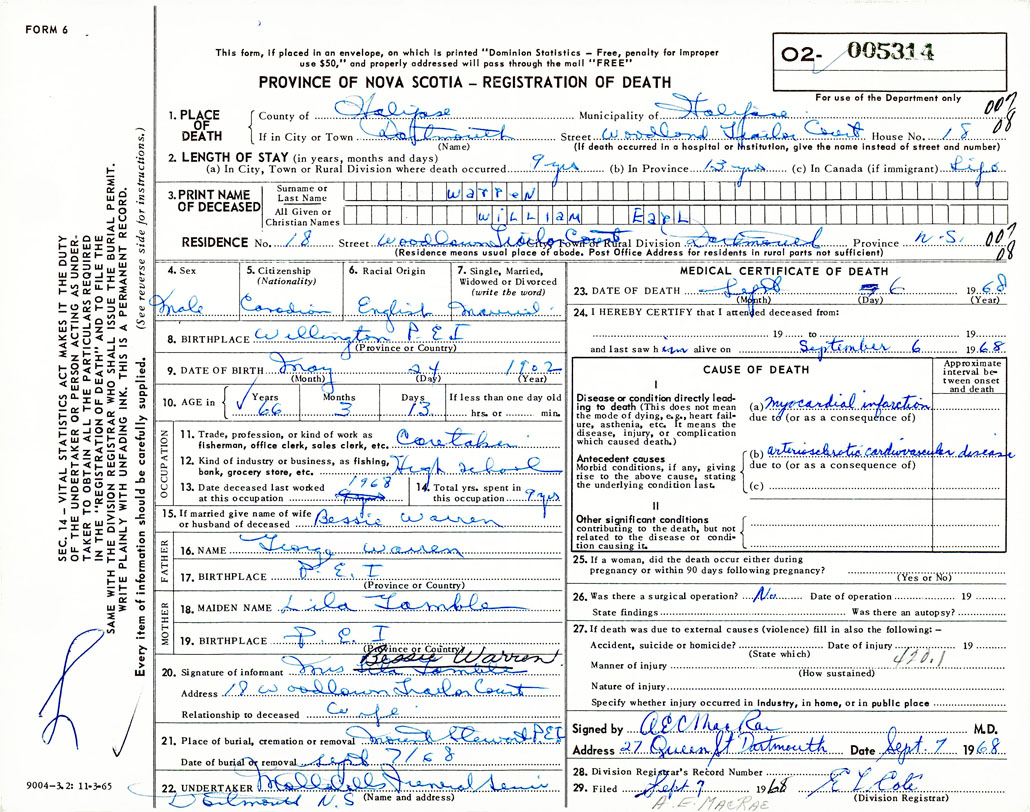 FORM 6
This form, if placed in an envelope, on which is printed "Dominion Statistics – Free, penalty for improper
use $50," and properly addressed will pass through the mail "FREE"
PROVINCE OF NOVA SCOTIA – REGISTRATION OF DEATH
02- 005314
For use of the Department only
007
08
1. PLACE OF DEATH
County of Halifax Municipality of Halifax
If in City or Town Dartmouth Street Woodlawn Trailer Court House No. 18
(Name) (If death occurred in a hospital or institution, give the name instead of street and number)
2. LENGTH OF STAY (in years, months and days)
(a) In City, Town or Rural Division where death occurred 9 yrs (b) In Province 13 yrs (c) In Canada (if immigrant) Life
3. PRINT NAME OF DECEASED
Surname or Last Name WARREN
All Given or Christian Names WILLIAM EARL
RESIDENCE No. 18 Street Woodlawn Trailer Court City, Town or Rural Division Dartmouth Province N.S. 007
08
(Residence means usual place of abode. Post Office Address for residents in rural parts not sufficient)
4. Sex
Male
5. Citizenship
(Nationality)
Canadian
6. Racial Origin
English
7. Single, Married,
Widowed or Divorced
(write the word)
Married
8. BIRTHPLACE Wellington P.E.I
(Province or Country)
9. DATE OF BIRTH May 24 1902
(Month) (Day) (Year)
10. AGE in Years Months Days If less than one day old
66 3 13 hrs. or min.
OCCUPATION
11. Trade, profession, or kind of work as
fisherman, office clerk, sales clerk, etc. Caretaker
12. Kind of industry or business, as fishing,
bank, grocery store, etc. High school
13. Date deceased last worked
at this occupation 1968
14. Total yrs. spent in
this occupation 9 yrs
15. If married give name of wife
or husband of deceased Bessie Warren
FATHER
16. NAME George Warren
17. BIRTHPLACE P.E.I
(Province or Country)
MOTHER
18. MAIDEN NAME Lila Tamble
19. BIRTHPLACE P.E.I
(Province or Country)
Bessie Warren
20. Signature of informant Mrs
Address 18 Woodlawn Trailer Court
Relationship to deceased Wife
21. Place of burial, cremation or removal Mount Stewart PEI
Date of burial or removal Sept 7/68
22. UNDERTAKER
Dartmouth N.S (Name and address)
9004-3.2: 11-3-65
MEDICAL CERTIFICATE OF DEATH
23. DATE OF DEATH Sept 6 1968
(Month) (Day) (Year)
24. I HEREBY CERTIFY that I attended deceased from:
19 to 19
and last saw him alive on September 6 1968
CAUSE OF DEATH
Approximate
interval be-
tween onset
and death
I
Disease or condition directly lead-
ing to death (This does not mean
the mode of dying, e.g., heart fail-
ure, asthenia, etc. It means the
disease, injury, or complication
which caused death.)
(a) myocardial infarction
due to (or as a consequence of)
Antecedent causes
Morbid conditions, if any, giving
rise to the above cause, stating
the underlying condition last.
(b) arteriosclerotic cardiovascular disease
due to (or as a consequence of)
(c)
II
Other significant conditions
contributing to the death, but not
related to the disease or condi-
tion causing it.
25. If a woman, did the death occur either during
pregnancy or within 90 days following pregnancy?
(Yes or No)
26. Was there a surgical operation? No Date of operation 19
State findings Was there an autopsy?
27. If death was due to external causes (violence) fill in also the following: –
Accident, suicide or homicide? Date of injury 19
(State which)
420.1
Manner of injury
(How sustained)
Nature of injury
Specify whether injury occurred in industry, in home, or in public place
Signed by A E C MacRae M.D.
Address 27 Queen St Dartmouth Date Sept. 7 1968
28. Division Registrar's Record Number
29. Filed Sept 9 1968 E L Cole
(Division Registrar)
A. E. MACRAE
SEC. 14 – VITAL STATISTICS ACT MAKES IT THE DUTY
OF THE UNDERTAKER OR PERSON ACTING AS UNDER-
TAKER TO OBTAIN ALL THE PARTICULARS REQUIRED
IN THE "REGISTRATION OF DEATH" AND TO FILE THE
SAME WITH THE DIVISION REGISTRAR WHO SHALL ISSUE THE BURIAL PERMIT.
WRITE PLAINLY WITH UNFADING INK. THIS IS A PERMANENT RECORD.
Every item of information should be carefully supplied. (See reverse side for instructions.)